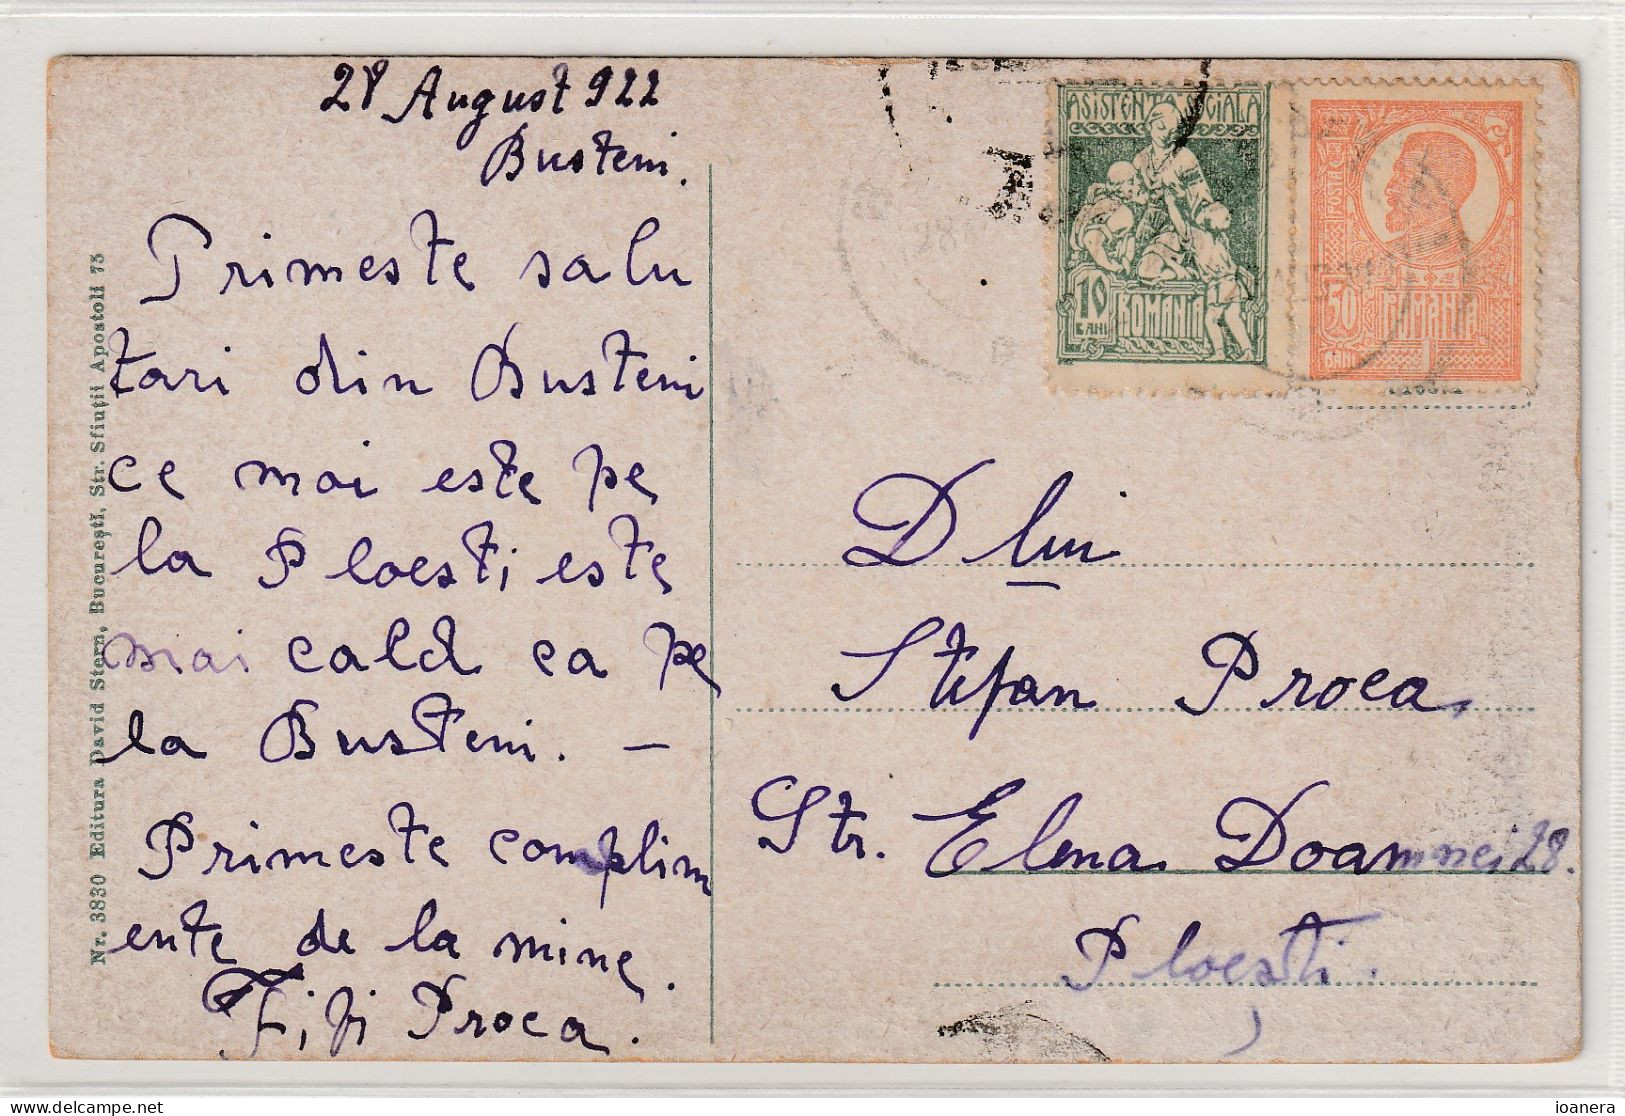 28 August 922
Busteni.
Primeste salu
tari din Busteni
ce mai este pe
la Ploesti este
mai cald ca pe
la Busteni. —
Primeste complim
ente de la mine.
Fifi Proca.
Nr. 3830 Editura David Stern, București, Str. Sfinții Apostoli 75
ASISTENTA SOCIALA
10
BANI
ROMANIA
POSTA
50
BANI
ROMANIA
Dlui
Stefan Proca
Str. Elena Doamnei 28.
Ploești.
ioanera